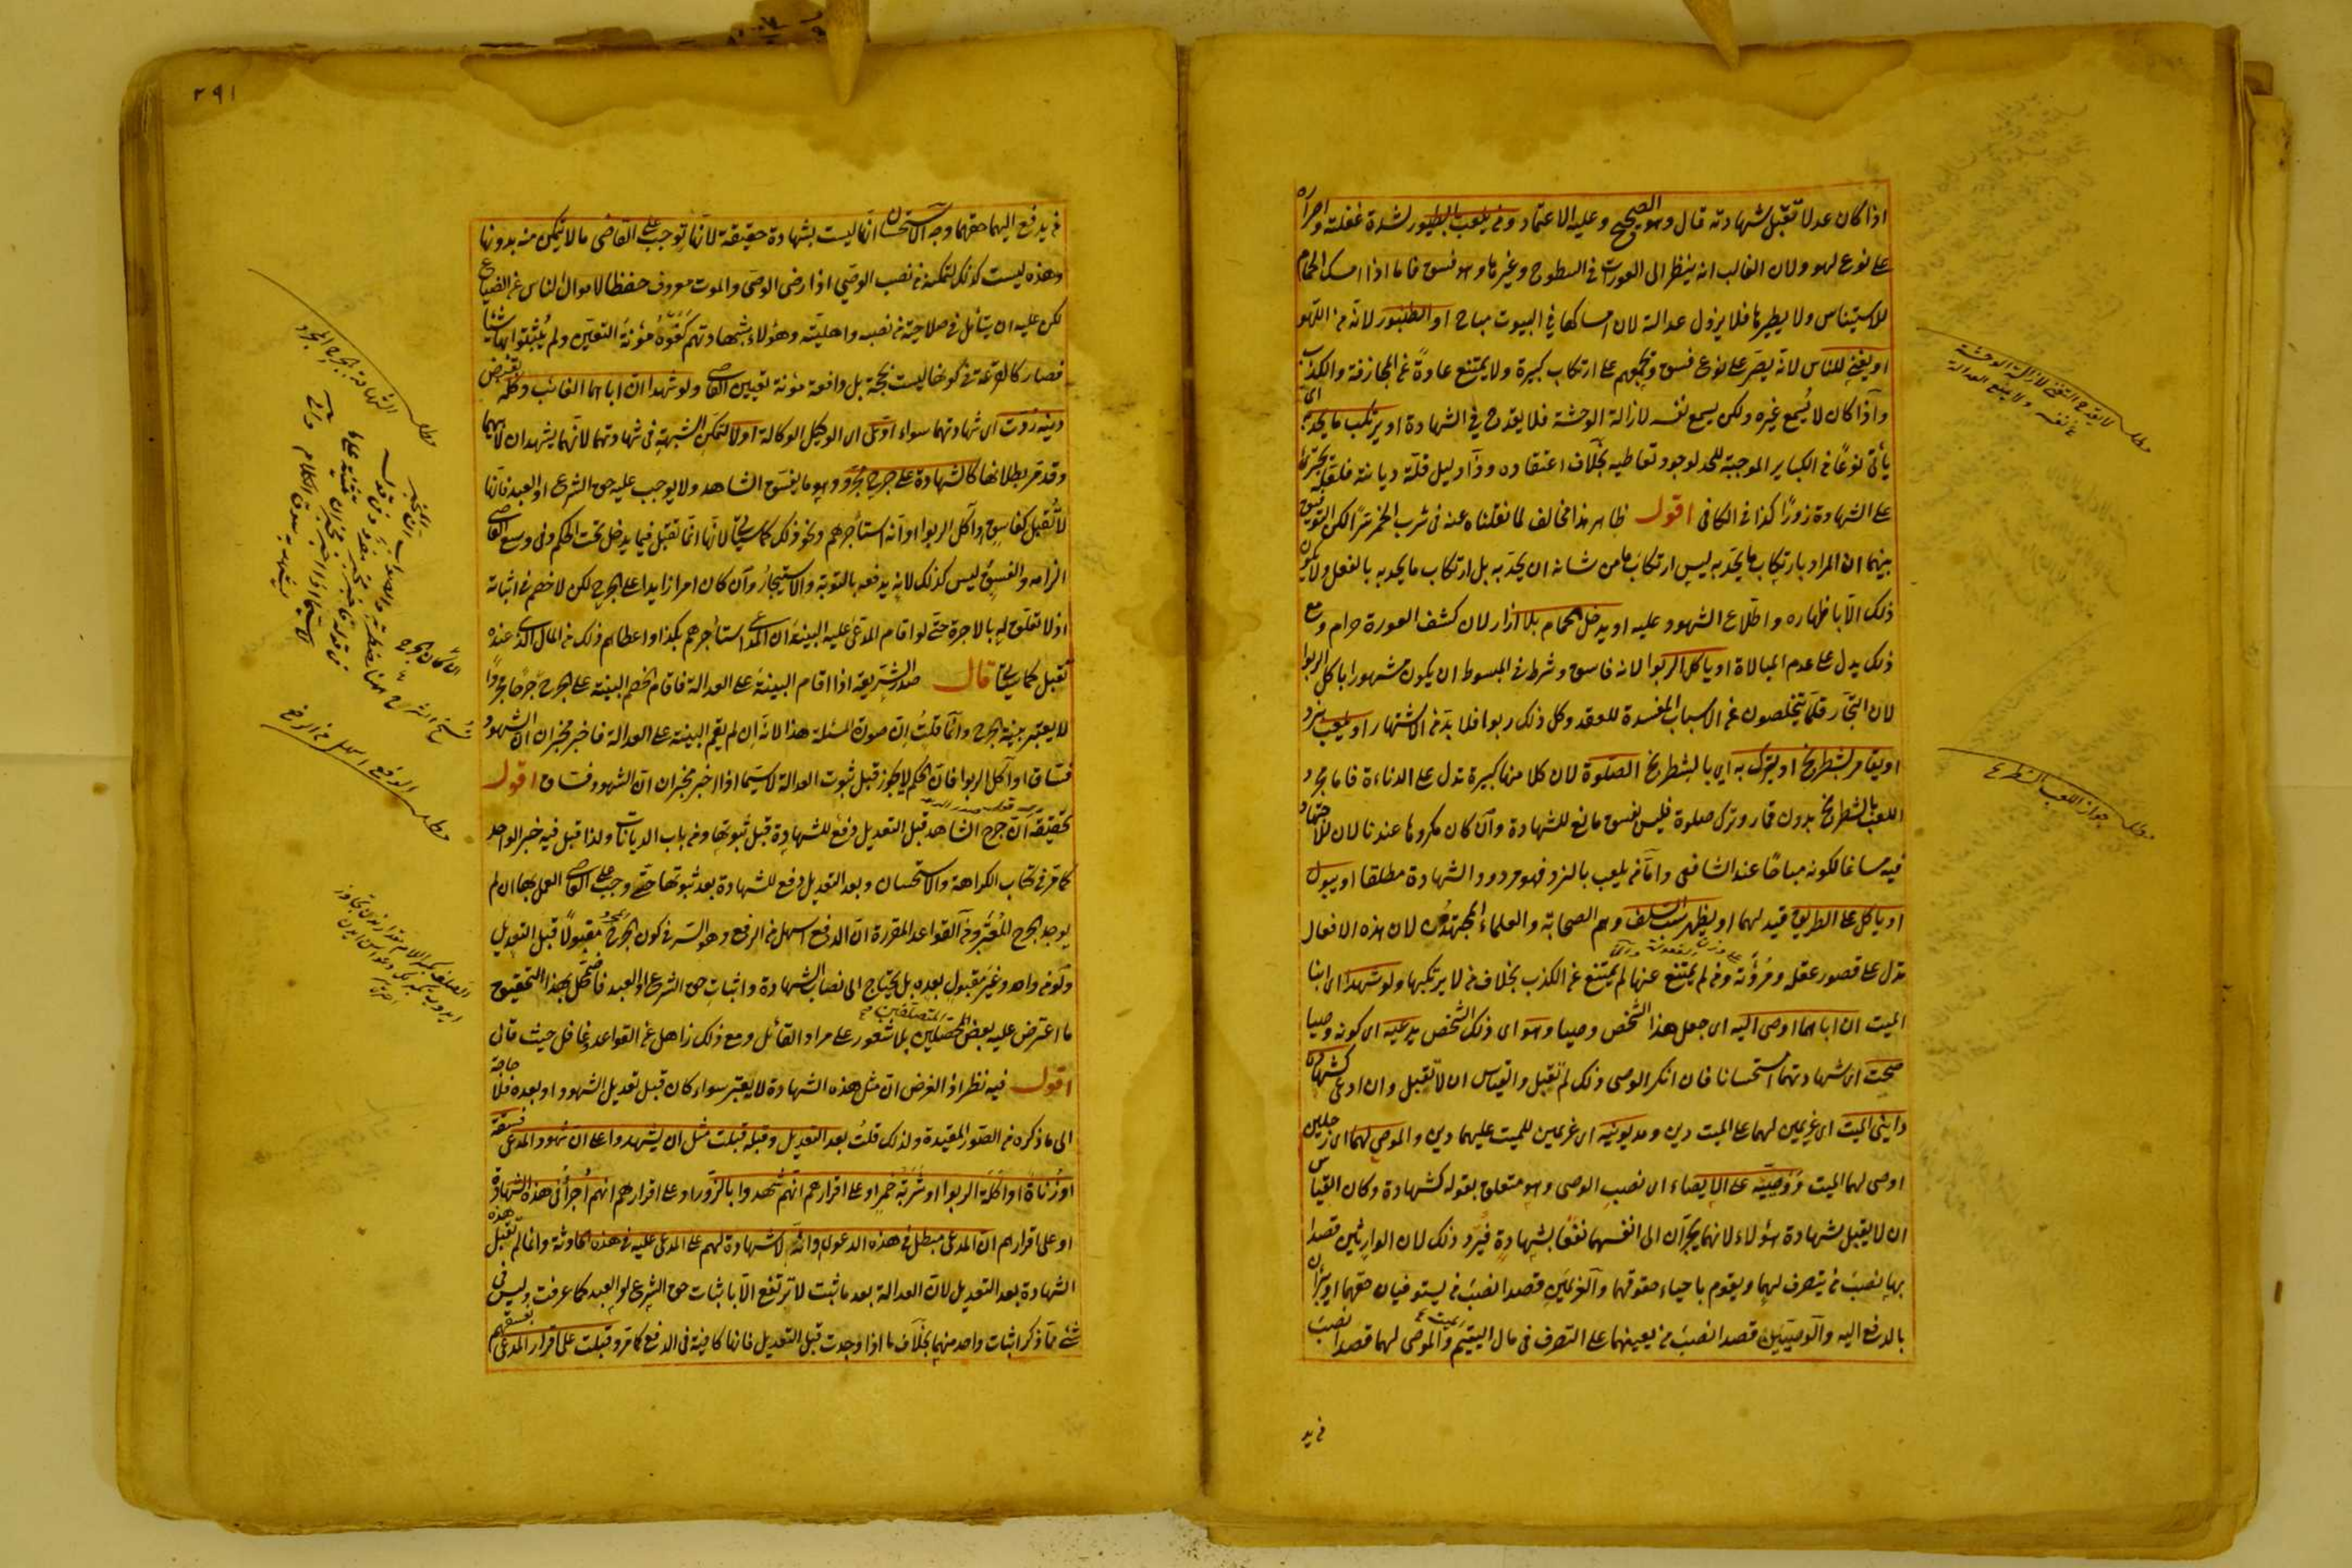 اذا كان عدلا تقبل شهادته قال وهو الصحيح وعليه الاعتماد ومن يلعب بالطيور لشدة غفلته واصراره
على نوع لهو ولان الغالب انه ينظر الى العورات فى السطوح وغيرها وهو فسق فاما اذا امسك الحمام
للاستيناس ولا يطيرها فلا يزول عدالته لان امساكها في البيوت مباح او الطنبور لانه من اللهو
او يغنى للناس لانه يصر على نوع فسق ويجمعهم على ارتكاب كبيرة ولا يمتنع عادة عن المجازفة والكذب
واما اذا كان لا يُسمع غيره ولكن يسمع نفسه لازالة الوحشة فلا يقدح في الشهادة او يرتكب ما يحد به اى
يأتى نوعًا من الكباير الموجبة للحد لوجود تعاطيه بخلاف اعتقاده وذا دليل قلة ديانته فلعله يجترئ
على الشهادة زورًا كذا فى الكافى اقول ظاهر هذا مخالف لما نقلناه عنه فى شرب الخمر سرًا لكن التوفيق
بينهما ان المراد بارتكاب ما يحد به ليس ارتكاب ما من شانه ان يحد به بل ارتكاب ما يحد به بالفعل ولا يكون
ذلك الا باظهاره واطلاع الشهود عليه او يدخل الحمام بلا ازار لان كشف العورة حرام ومع
ذلك يدل على عدم المبالاة او ياكل الربوا لانه فاسق وشرط فى المبسوط ان يكون مشهورا باكل الربوا
لان التجار قلما يتخلصون عن الاسباب المفسدة للعقد وكل ذلك ربوا فلا بد من الاشتهار او يلعب بنرد
او يقامر بشطرنج او يترك به اي بالشطرنج الصلوة لان كلا منها كبيرة تدل على الدناءة فاما مجرد
اللعب بالشطرنج بدون قمار وترك صلوة فليس بفسق مانع للشهادة وان كان مكروها عندنا لان للاجتهاد
فيه مساغا لكونه مباحًا عند الشافعى واما من يلعب بالنرد فهو مردود الشهادة مطلقا او يبول
او ياكل على الطريق قيد لهما او يظهر سب السلف وهم الصحابة والعلماء المجتهدون لان هذه الافعال
تدل على قصور عقله ومروءته ومن لم يمتنع عنها لم يمتنع عن الكذب بخلاف من لا يرتكبها ولو شهدا اى ابنا
الميت ان اباهما اوصى اليه اى جعل هذا الشخص وصيا وهو اى ذلك الشخص يدعيه اى كونه وصيا
صحت اى شهادتهما استحسانا فان انكر الوصى ذلك لم تقبل والقياس ان لا تقبل وان ادعى كشهادة
داينى الميت اى غريمين لهما على الميت دين ومديونيه اى غريمين للميت عليهما دين والموصى لهما اى رجلين
اوصى لهما الميت ووصييه على الايصاء اى نصب الوصى وهو متعلق بقوله كشهادة وكان القياس
ان لا يقبل شهادة هؤلاء لانهما يجران الى انفسهما نفعًا بشهادة فيرد وذلك لان الوارثين قصدا
بها نصب من يتصرف لهما ويقوم باحياء حقوقهما والغريمين قصدا نصب من يستوفيان حقهما او يبران
بالدفع اليه والوصيين قصدا نصب من يعينهما على التصرف فى مال اليتيم والموصى لهما قصدا نصب
من يد
مطلب لا يقدح التغنى لازالة الوحشة
عن نفسه ولا يمنع العدالة
مطلب جواز اللعب بالشطرنج
٢٩١
من يدفع اليهما حقهما وجه الاستحسان انها ليست بشهادة حقيقة لانها توجب على القاضى ما لا يتمكن منه بدونها
وهذه ليست كذلك لتمكنه من نصب الوصي اذا رضى الوصى والموت معروف حفظا لاموال الناس عن الضياع
لكن عليه ان يتأمل فى صلاحية من نصبه واهليته وهؤلاء بشهادتهم كفوه مؤنة التعيين ولم يُثبتوا بها شيئا
فصار كالقرعة فى كونها ليست بحجة بل دافعة مؤنة تعيين القاضى ولو شهدا ان اباهما الغائب وكله بقبض
دينه ردت اى شهادتهما سواء ادعى اى الوكيل الوكالة او لا لتمكن الشبهة فى شهادتهما لانهما يشهدان لابيهما
وقد مر بطلانها كالشهادة على جرح مجرد وهو ما يفسق الشاهد ولا يوجب عليه حق الشرع او العبد فانها
لا تقبل كفاسق وآكل الربوا او انه استأجرهم ونحو ذلك كما سيأتى لانها انما تقبل فيما يدخل تحت الحكم وفى وسع القاضى
الزامه والفسق ليس كذلك لانه يدفعه بالتوبة والاستيجار وان كان امرا زايدا على الجرح لكن لا خصم فى اثباته
اذ لا تعلق له بالاجرة حتى لو اقام المدعى عليه البينة ان المدعى استأجرهم بكذا واعطاهم ذلك من المال الذى عنده
تقبل كما سيأتى قال صدر الشريعة اذا اقام البينة على العدالة فاقام الخصم البينة على الجرح جرحا مجردًا
لا يعتبر بينة الجرح وانما قلت ان صورة المسئلة هذا لانه ان لم يقم البينة على العدالة فاخبر مخبران ان الشهود
فساق او آكل الربوا فان الحكم لا يجوز قبل ثبوت العدالة لا سيما اذا اخبر مخبران ان الشهود فساق اقول
تحقيقه ان جرح الشاهد قبل التعديل دفع للشهادة قبل ثبوتها ومن باب الديانات ولذا قبل فيه خبر الواحد
كما مر فى كتاب الكراهة والاستحسان وبعد التعديل رفع للشهادة بعد ثبوتها حتى وجب على القاضى العمل بها ان لم
يوجد الجرح المعتبر ومن القواعد المقررة ان الدفع اسهل من الرفع وهو السر فى كون الجرح المجرد مقبولًا قبل التعديل
ولو من واحد وغير مقبول بعده بل يحتاج الى نصاب الشهادة واثبات حق الشرع او العبد فاضمحل بهذا التحقيق
ما اعترض عليه بعض المتصلفين بلا شعور على مراد القائل ومع ذلك ذاهل عن القواعد وغافل حيث قال
اقول فيه نظر اذ الغرض ان مثل هذه الشهادة لا يعتبر سواء كان قبل تعديل الشهود او بعده فلا حاجة
الى ما ذكره من الصور المقيدة ولذلك قلت بعد التعديل وقبله قبلت مثل ان يشهدوا على ان شهود المدعى فسقة
او زناة او اكلة الربوا او شربة خمر او على اقرارهم انهم شهدوا بالزور او على اقرارهم انهم اجراء فى هذه الشهادة
او على اقرارهم ان المدعى مبطل فى هذه الدعوى وانه لا شهادة لهم على المدعى عليه فى هذه الحادثة وانما لم تقبل هذه
الشهادة بعد التعديل لان العدالة بعد ما ثبت لا ترتفع الا باثبات حق الشرع او العبد كما عرفت وليس فى
شئ مما ذكر اثبات واحد منهما بخلاف ما اذا وجدت قبل التعديل فانها كافية فى الدفع كما مر وقبلت على اقرار المدعى بفسقهم
مطلب الشهادة على الجرح المجرد
مطلب الدفع اسهل من الرفع